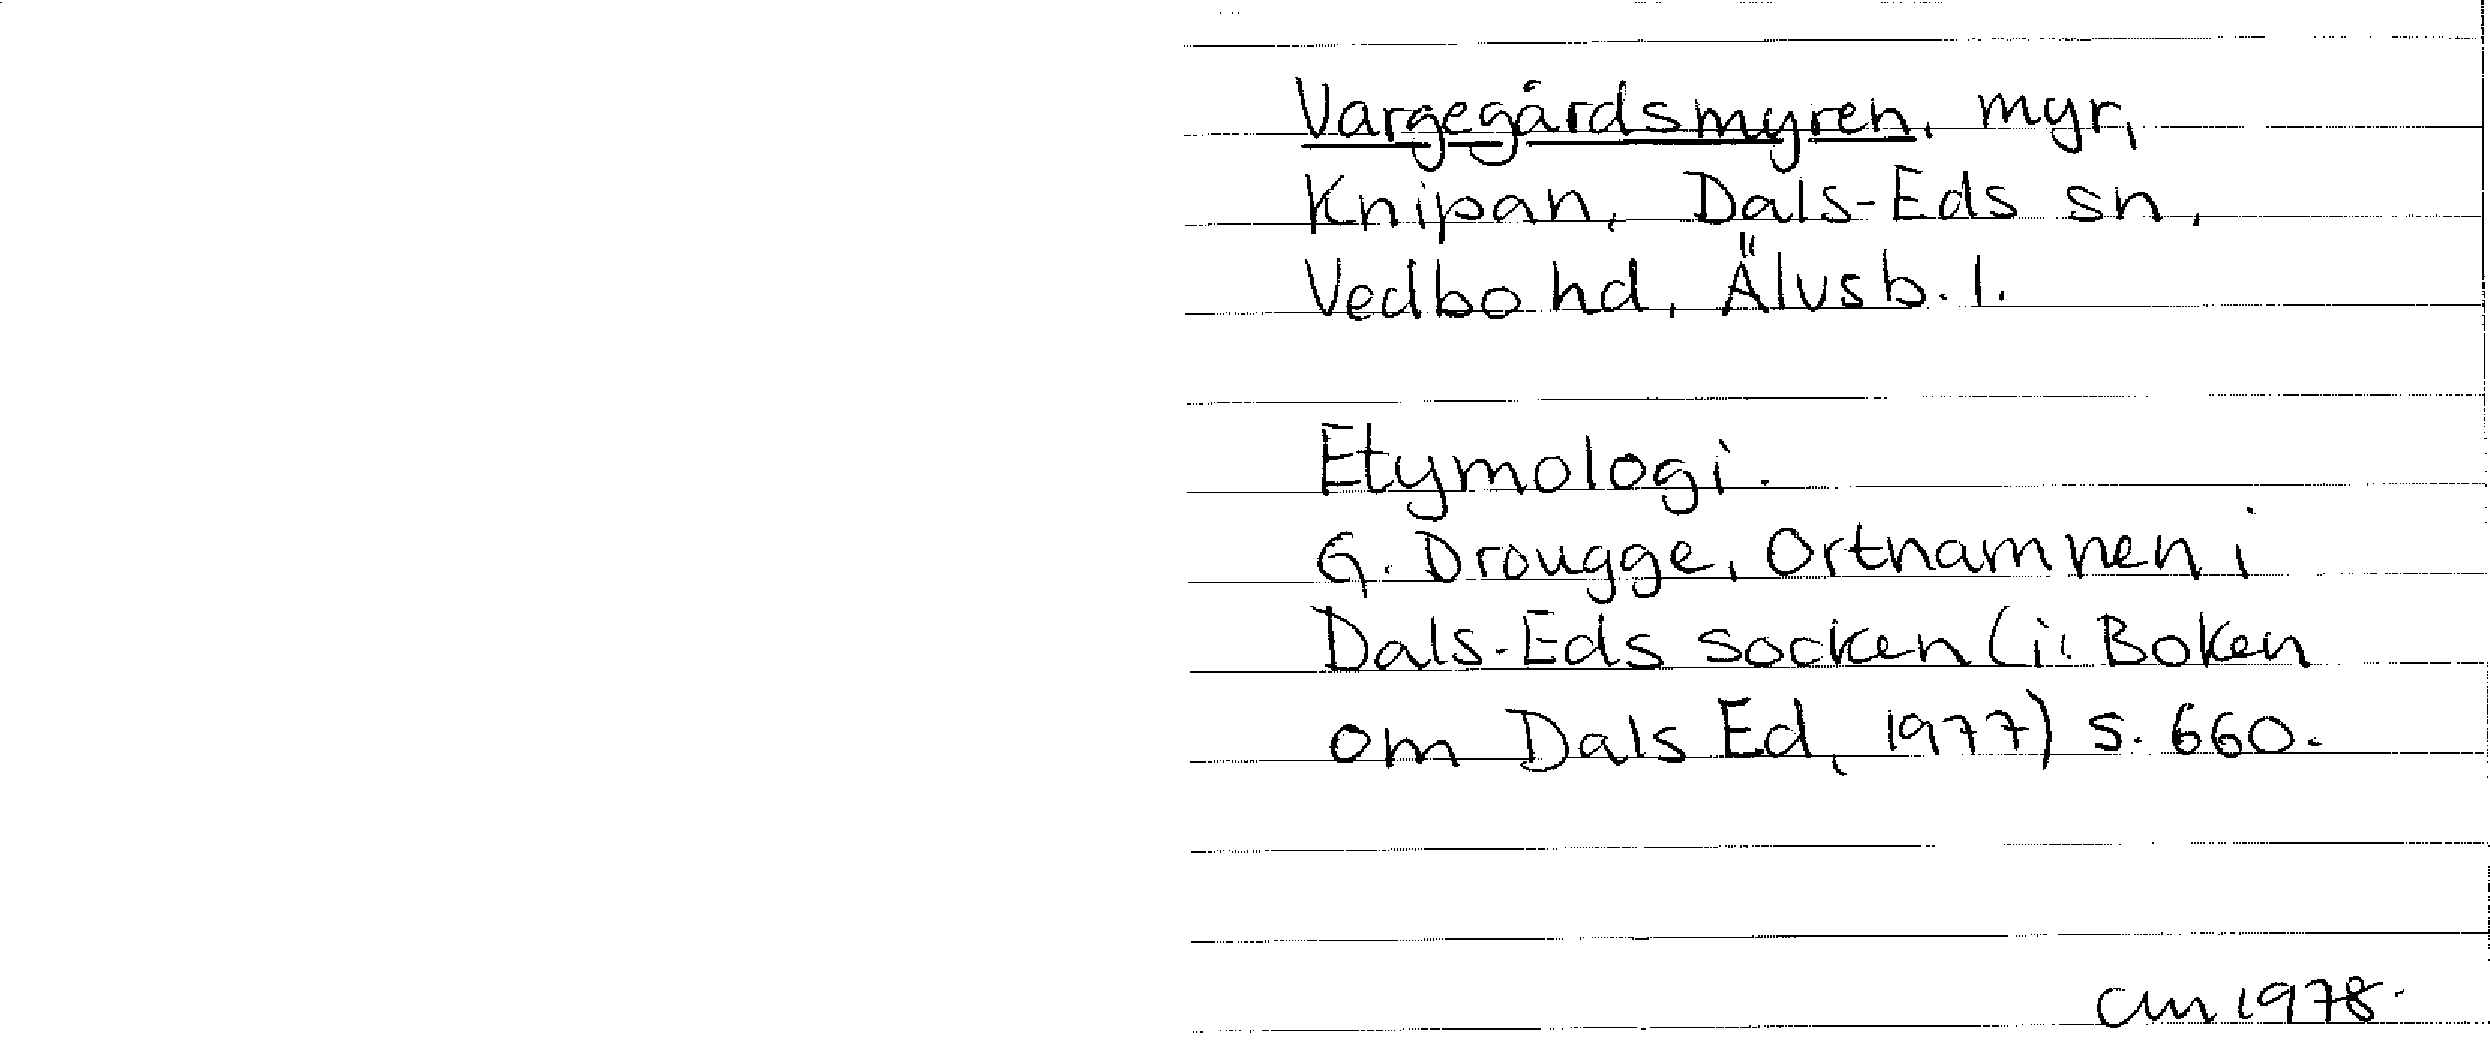 Vargegårdsmyren, myr,
Knipan, Dals-Eds sn,
Vedbo hd, Älvsb. l.
Etymologi.
G. Drougge, Ortnamnen i
Dals-Eds socken (i: Boken
om Dals Ed, 1977) s. 660.
CM 1978.